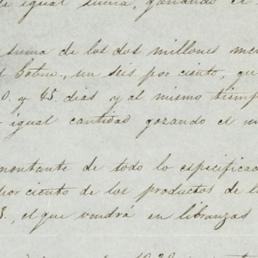 igual suma, ganando el
suma de los dos millones me
un seis por ciento, qu
0. y 45 dias y al mismo tiemp
igual cantidad gozando el m
montante de todo lo especificad
por ciento de los productos de l
3., el que vendrá en libranzas